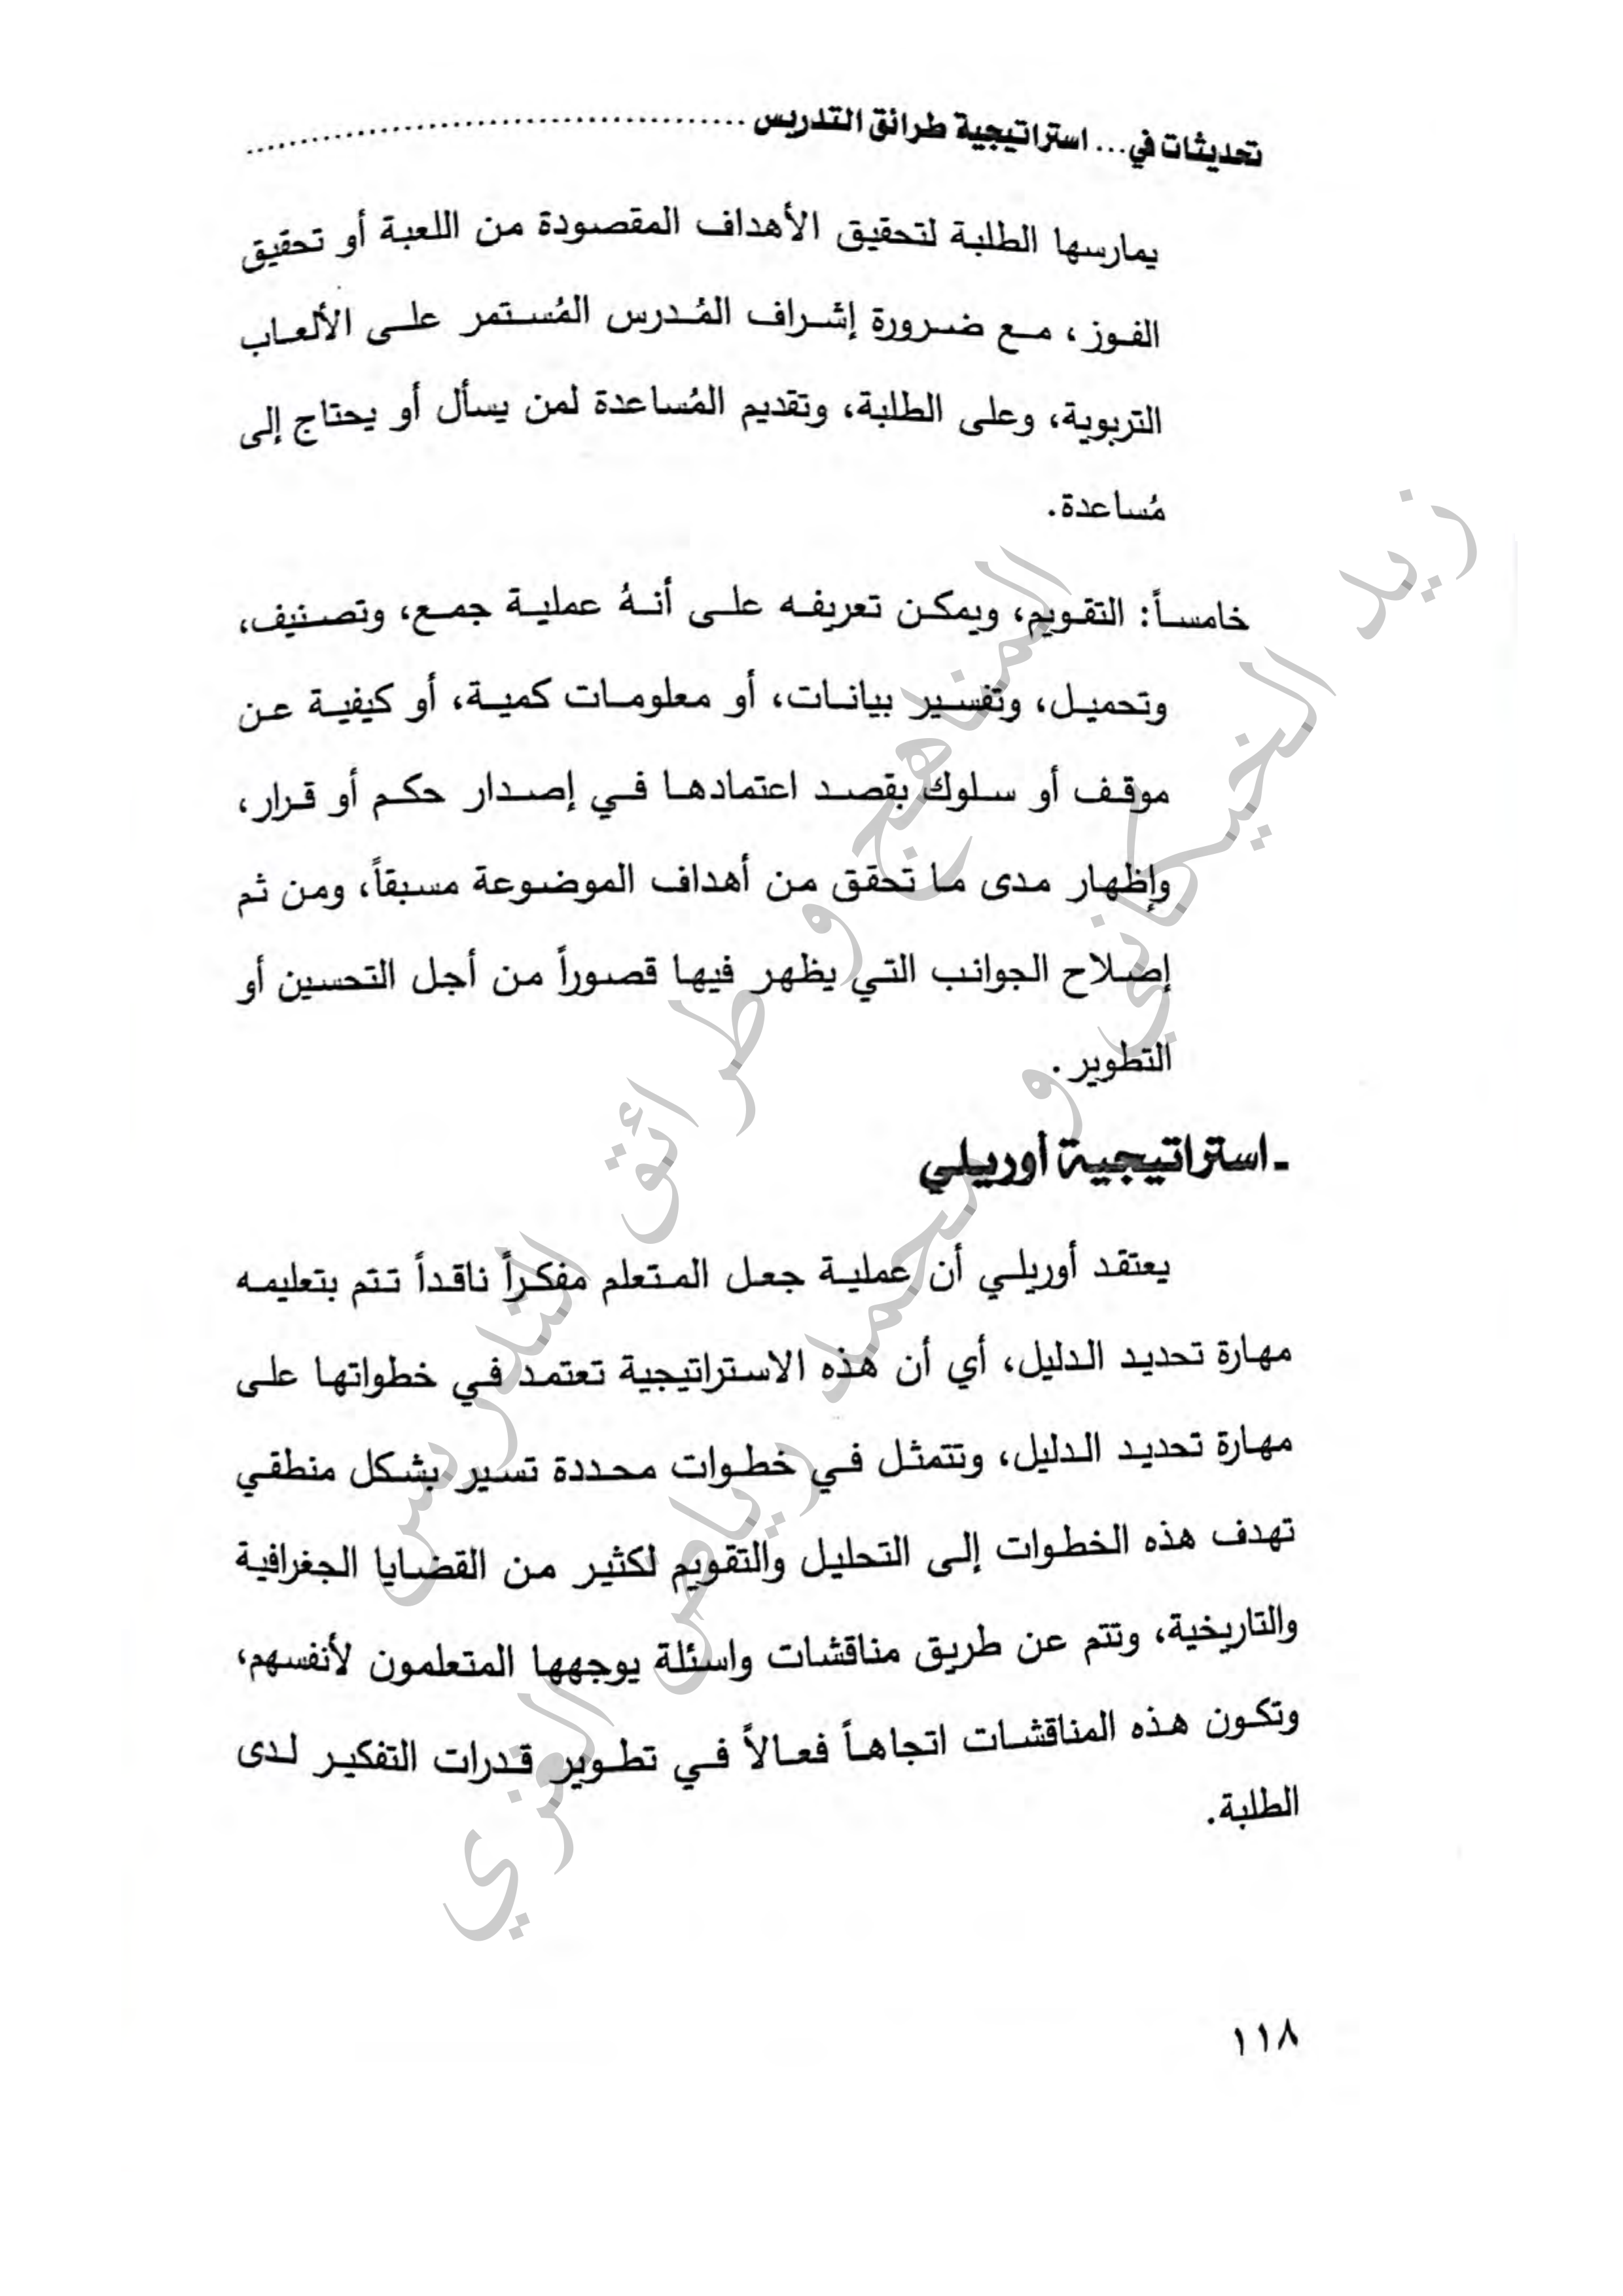 تحديثات في... استراتيجية طرائق التدريس ..........................................
يمارسها الطلبة لتحقيق الأهداف المقصودة من اللعبة أو تحقيق
الفوز، مع ضرورة إشراف المُدرس المُستمر على الألعاب
التربوية، وعلى الطلبة، وتقديم المُساعدة لمن يسأل أو يحتاج إلى
مُساعدة.
خامساً: التقويم، ويمكن تعريفه على أنهُ عملية جمع، وتصنيف،
وتحميل، وتفسير بيانات، أو معلومات كمية، أو كيفية عن
موقف أو سلوك بقصد اعتمادها في إصدار حكم أو قرار،
وإظهار مدى ما تحقق من أهداف الموضوعة مسبقاً، ومن ثم
إصلاح الجوانب التي يظهر فيها قصوراً من أجل التحسين أو
التطوير.
- استراتيجية أوريلي
يعتقد أوريلي أن عملية جعل المتعلم مفكراً ناقداً تتم بتعليمه
مهارة تحديد الدليل، أي أن هذه الاستراتيجية تعتمد في خطواتها على
مهارة تحديد الدليل، وتتمثل في خطوات محددة تسير بشكل منطقي
تهدف هذه الخطوات إلى التحليل والتقويم لكثير من القضايا الجغرافية
والتاريخية، وتتم عن طريق مناقشات واسئلة يوجهها المتعلمون لأنفسهم،
وتكون هذه المناقشات اتجاهاً فعالاً في تطوير قدرات التفكير لدى
الطلبة.
المناهج و طرائق التدريس
زيد الخيكاني و محمد رياض الغزي
١١٨